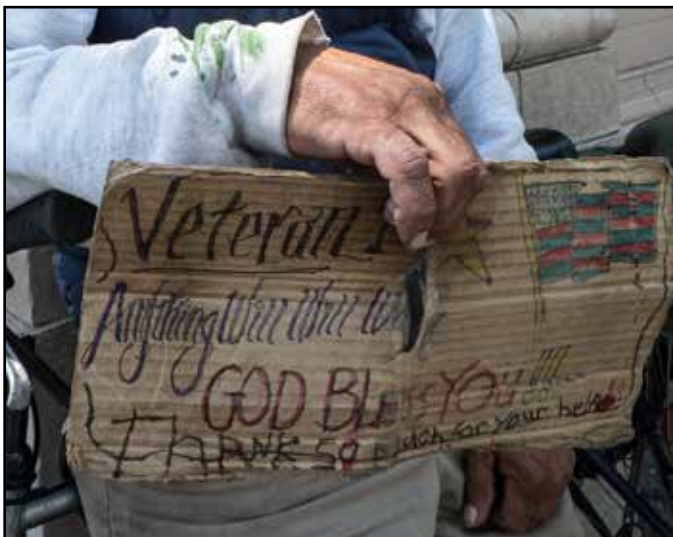 Veteran
Anything Will Will
GOD BLESS YOU!!!
THANK SO Much for your help